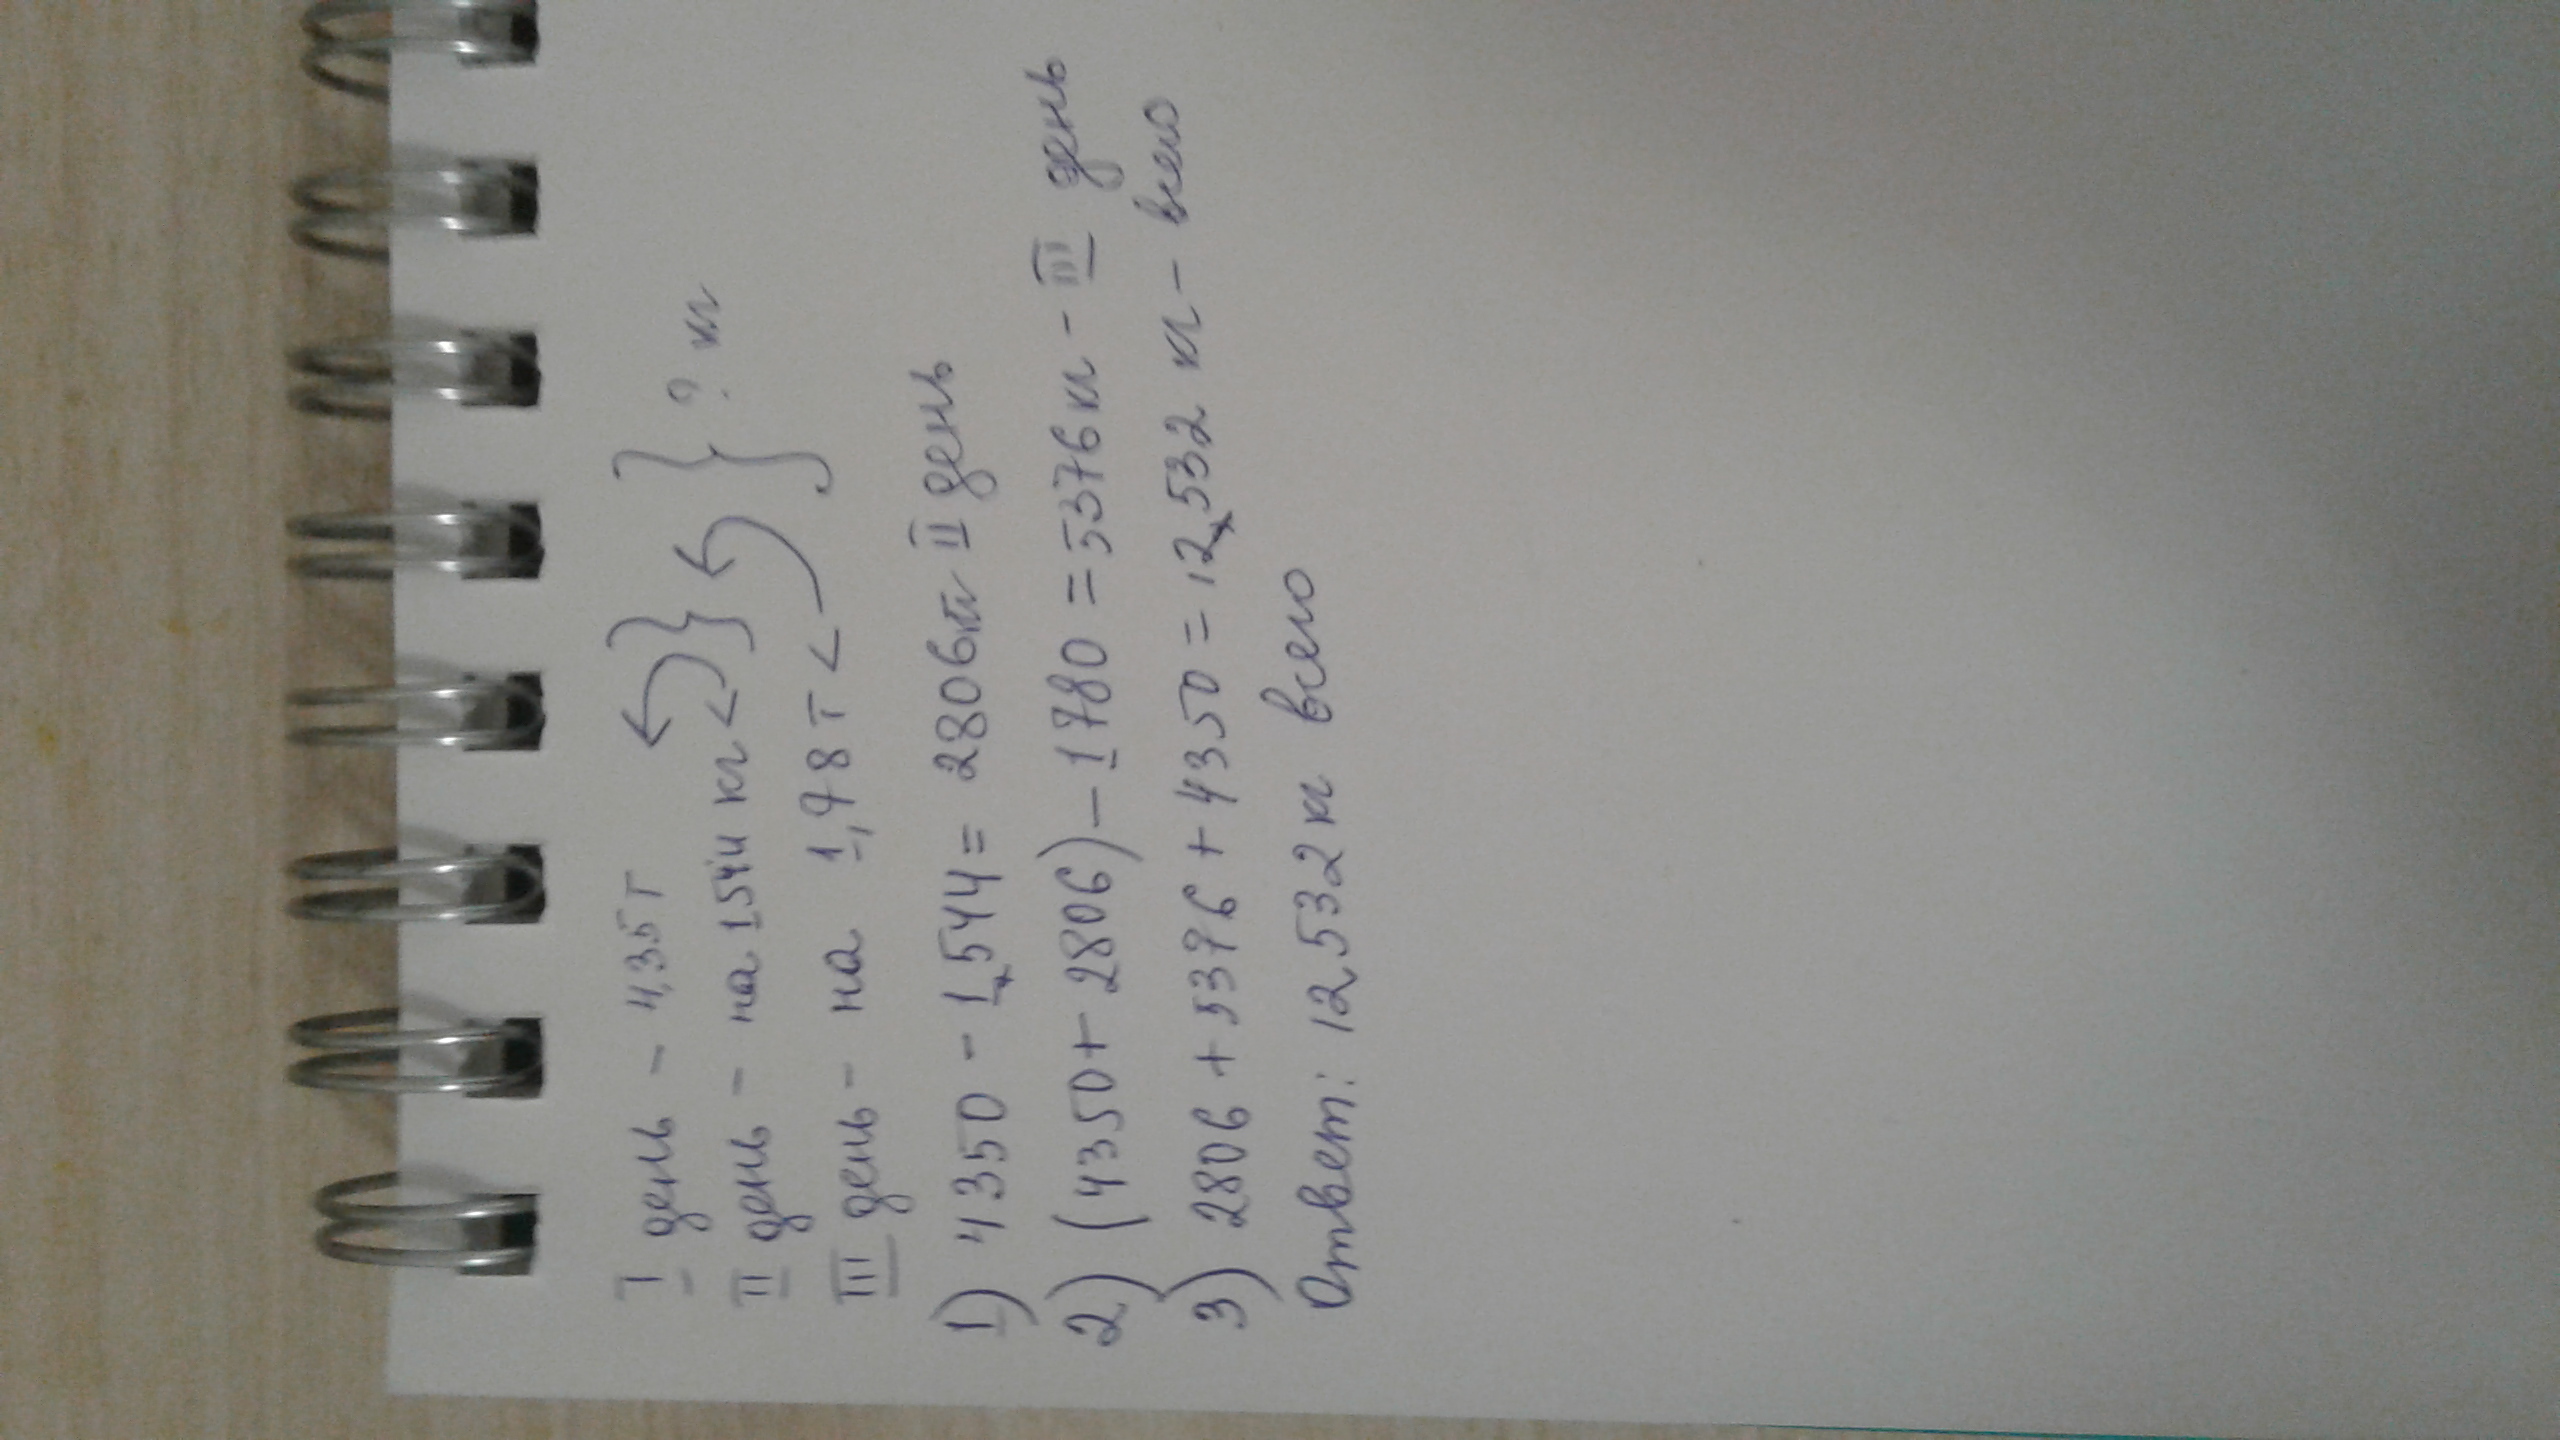 I день - 4,35 т
II день - на 1544 кг <
III день - на 1,78 т < } ? кг
1) 4350 - 1544 = 2806 кг II день
2) (4350 + 2806) - 1780 = 5376 кг - III день
3) 2806 + 5376 + 4350 = 12532 кг - всего
Ответ: 12532 кг всего